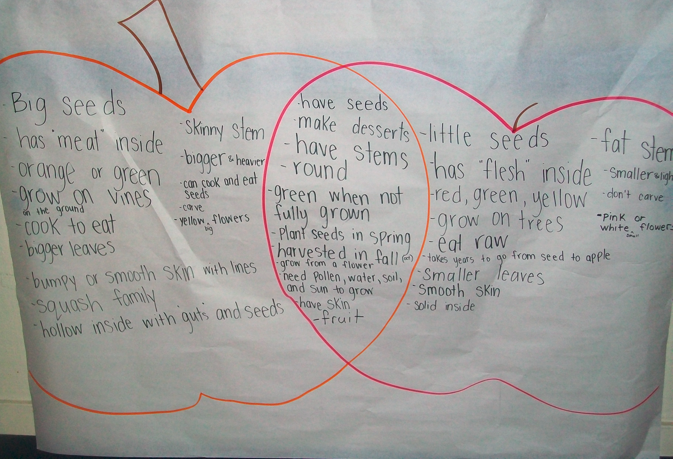 Big seeds
- has "meat" inside
- orange or green
- grow on vines
on the ground
- cook to eat
- bigger leaves
- bumpy or smooth skin with lines
- squash family
- hollow inside with guts and seeds
- skinny stem
- bigger & heavier
- can cook and eat
seeds
- carve
- yellow flowers
big
- have seeds
- make desserts
- have stems
- round
- green when not
fully grown
- Plant seeds in spring
- harvested in fall
- grow from a flower
- need pollen, water, soil,
and sun to grow
- have skin
- fruit
- little seeds
- has "flesh" inside
- red, green, yellow
- grow on trees
- eat raw
- takes years to go from seed to apple
- smaller leaves
- smooth skin
- solid inside
- fat stem
- smaller
- don't carve
- Pink or
white flowers